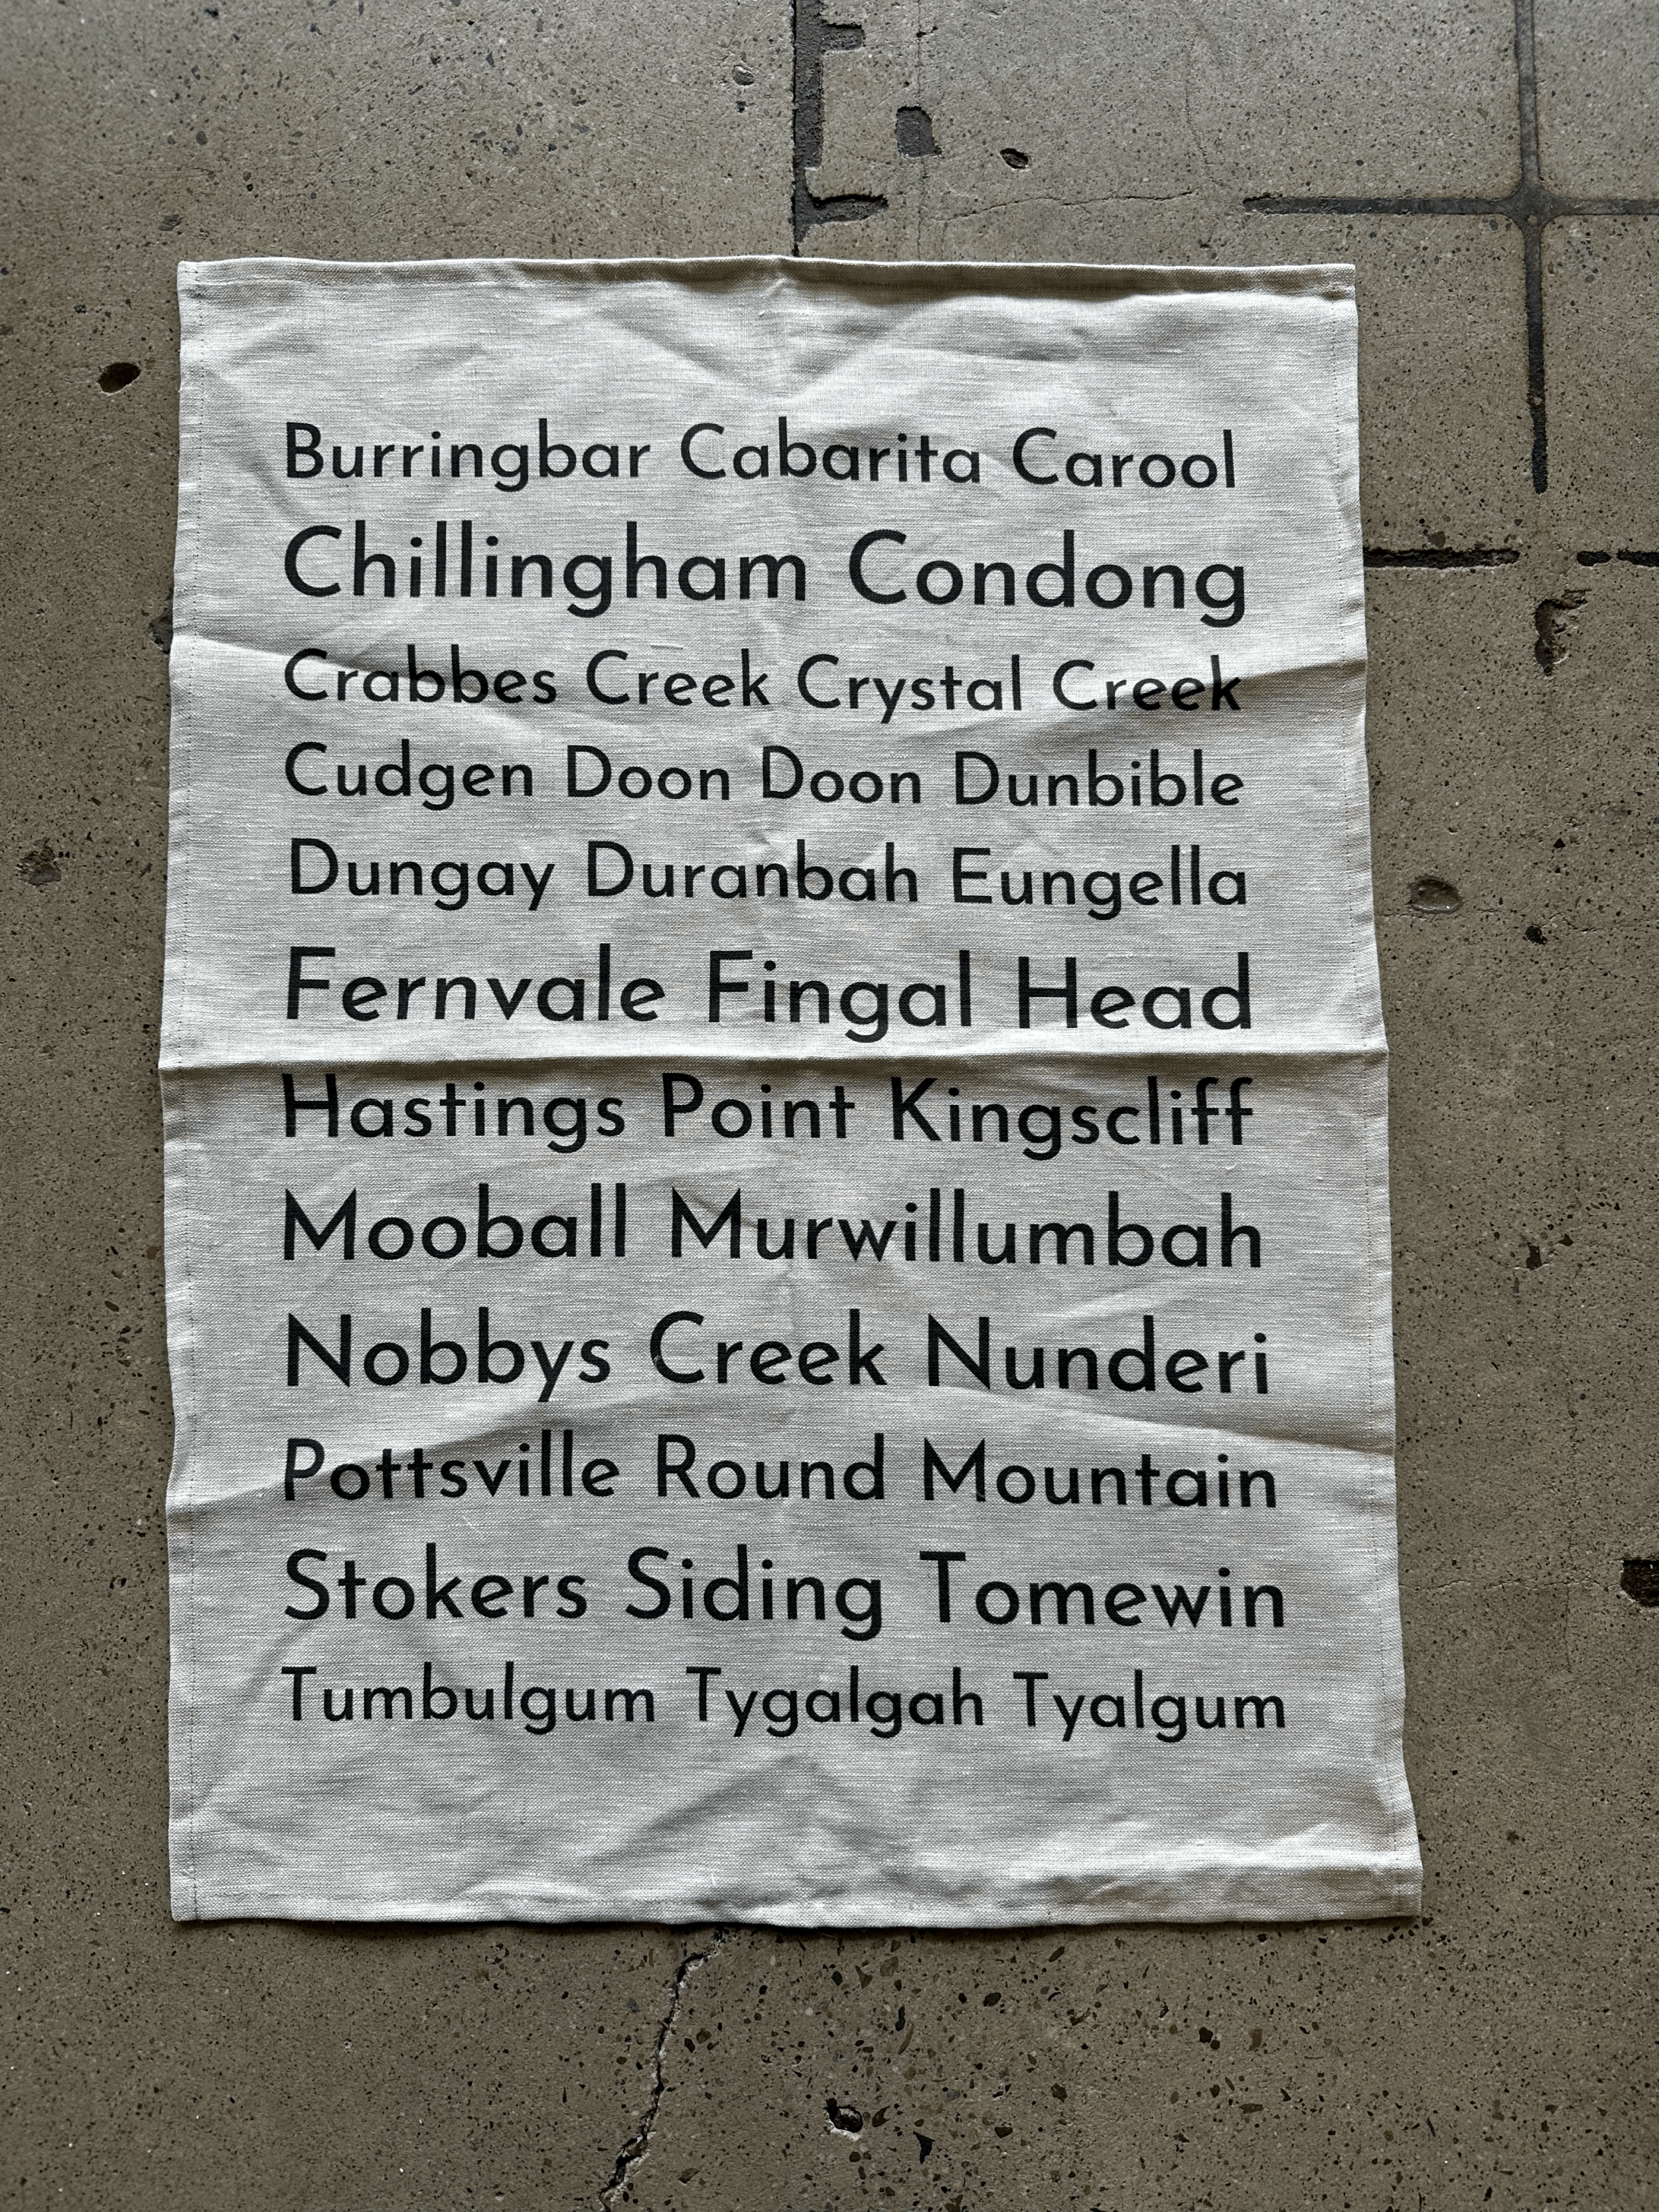 Burringbar Cabarita Carool
Chillingham Condong
Crabbes Creek Crystal Creek
Cudgen Doon Doon Dunbible
Dungay Duranbah Eungella
Fernvale Fingal Head
Hastings Point Kingscliff
Mooball Murwillumbah
Nobbys Creek Nunderi
Pottsville Round Mountain
Stokers Siding Tomewin
Tumbulgum Tygalgah Tyalgum